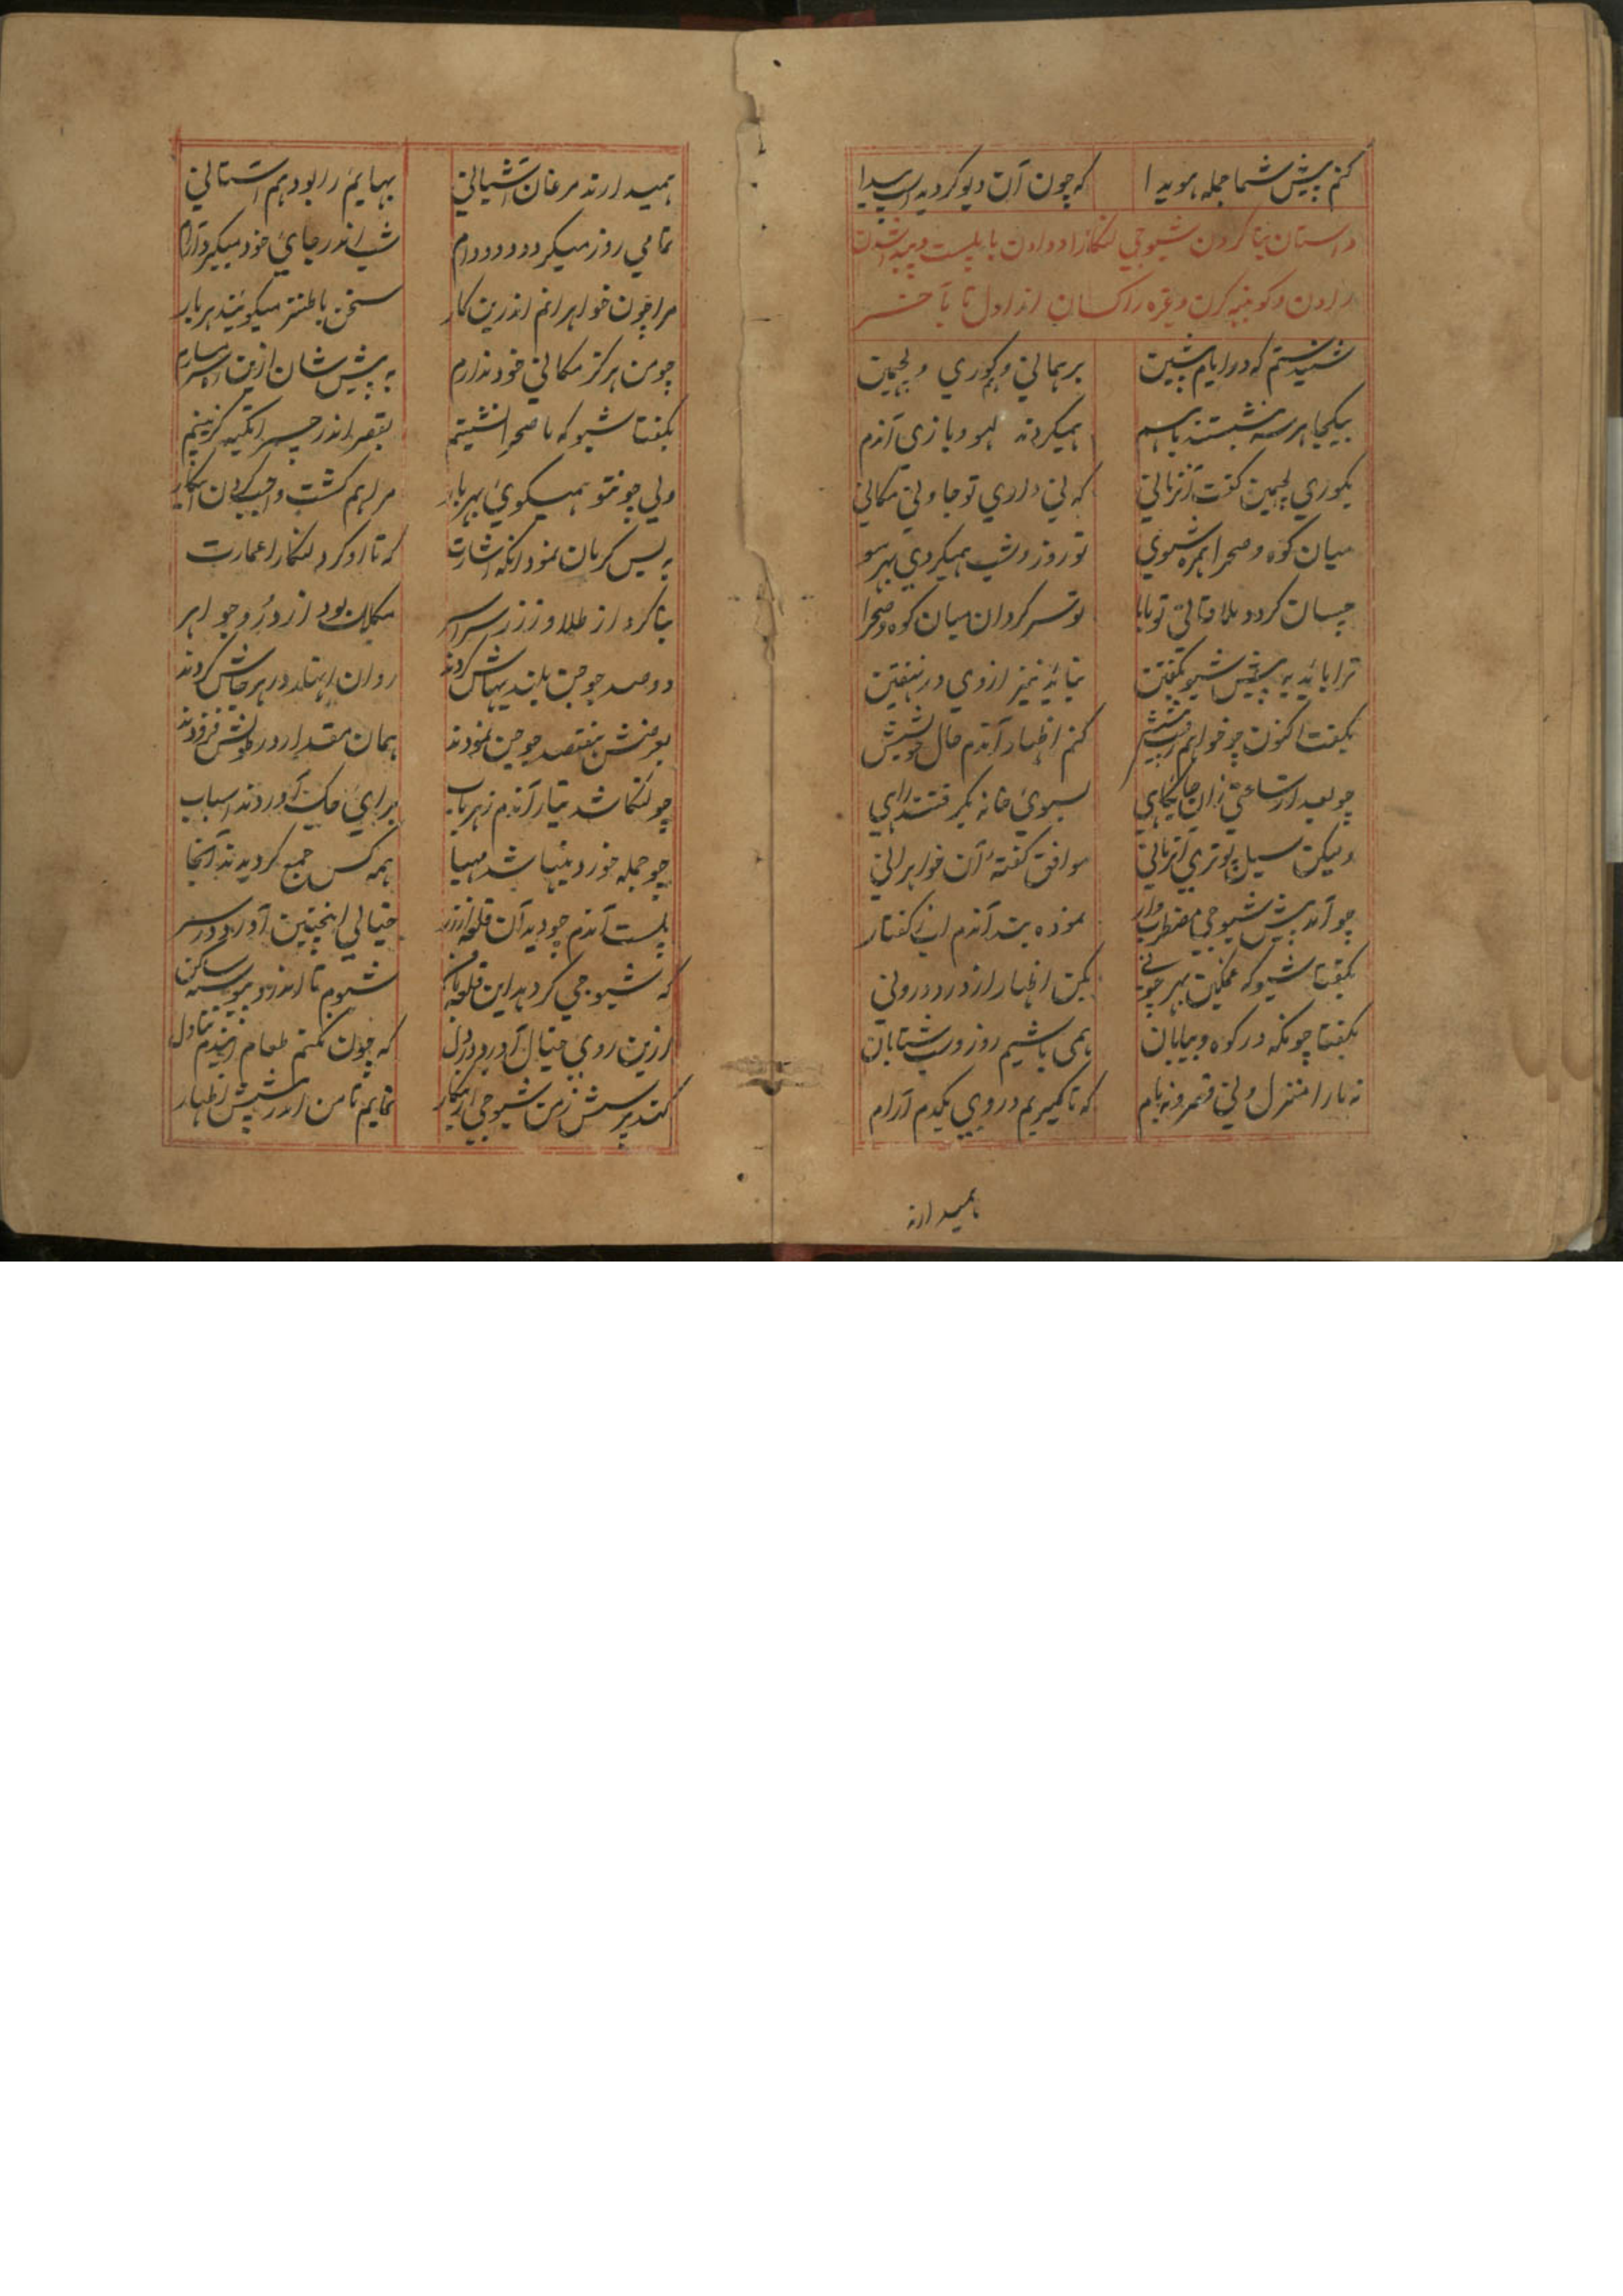 کنم پیش شما جمله هویدا که چون آن دیو کردید پیدا
داستان بنا کردن شیوجی لنکا را و دادن با پلست و پیدا شدن
راون و کونبه کرن و غیره راکسان از اول تا بآخر
شنیدستم که در ایام پیشین برهمانی و کوری و لچمین
بیکجا هر سه بنشستند باهم همیکردند لهو و بازی آندم
بکوری لچمین گفت آنزمانی که نی داری تو جا و نی مکانی
میان کوه و صحرا همره شیو تو روز و شب همیکردی بهر سو
چسان کردد ملاقاتی تو با ما تو سرکردان میان کوه و صحرا
ترا باید به پیش شیو بگفتن نباید نیز از وی در نهفتن
بگفت اکنون چو خواهم رفت پیشش کنم اظهار آندم حال خویشش
چو بعد از ساعتی زان جایگاهی بسوی خانه بگرفتند راهی
ولیکن سیل پوتری آنزمانی موافق گفتهٔ آن خواهرانی
چو آمد پیش شیوجی مضطرب وار نموده بد آندم این گفتار
بگفتا شیو که غمگین بهر چونی بکن اظهار از درد درونی
بگفتا چونکه در کوه و بیابان همی باشیم روز و شب شتابان
نه ما را منزل و نی قصر و نه بام که تا گیریم در وی یکدم آرام
همیدارند
همیدارند مرغان آشیانی بهایم را بود هم آستانی
تمامی روز میکردد دد و دام شب اندر جای خود میگیرد آرام
مرا چون خواهرانم اندرین کار سخن با طنز میگویند هر بار
چو من هرکز مکانی خود ندارم به پیش شان ازین شرمسارم
بگفتا شیو که ما صحرا نشینیم بقصر اندر چسرا تکیه گزینیم
ولی چونتو همیکوی بهر بار مرا هم کشت واجب کردن این کار
به بسکرمان نمود آنکه اشارت که تا او کرد لنکا را عمارت
بنا کرد از طلا و زر سراسر مکلل بود از در و جواهر
دو صد جوجن بلندیهاش کردند روان انهار در هر جاش کردند
بعرضش هفتصد جوجن نمودند همان مقدار در طولش فزودند
چو لنکا شد تیار آندم زهر باب برای جک آوردند اسباب
چو جمله خوردنیها شد مهیا همه کس جمع کردیدند آنجا
پلست آندم چو دید آن قلعه از زر خیالی اینچنین آورد در سر
که شیوجی کر دهد این قلعه با من شوم تا اندرو پیوسته ساکن
ازین روی خیال آورد در دل که چون نکنم طعام ایندم تناول
کند پرسش ز من شیوجی ازین کار نمایم تا من اندر پیشش اظهار